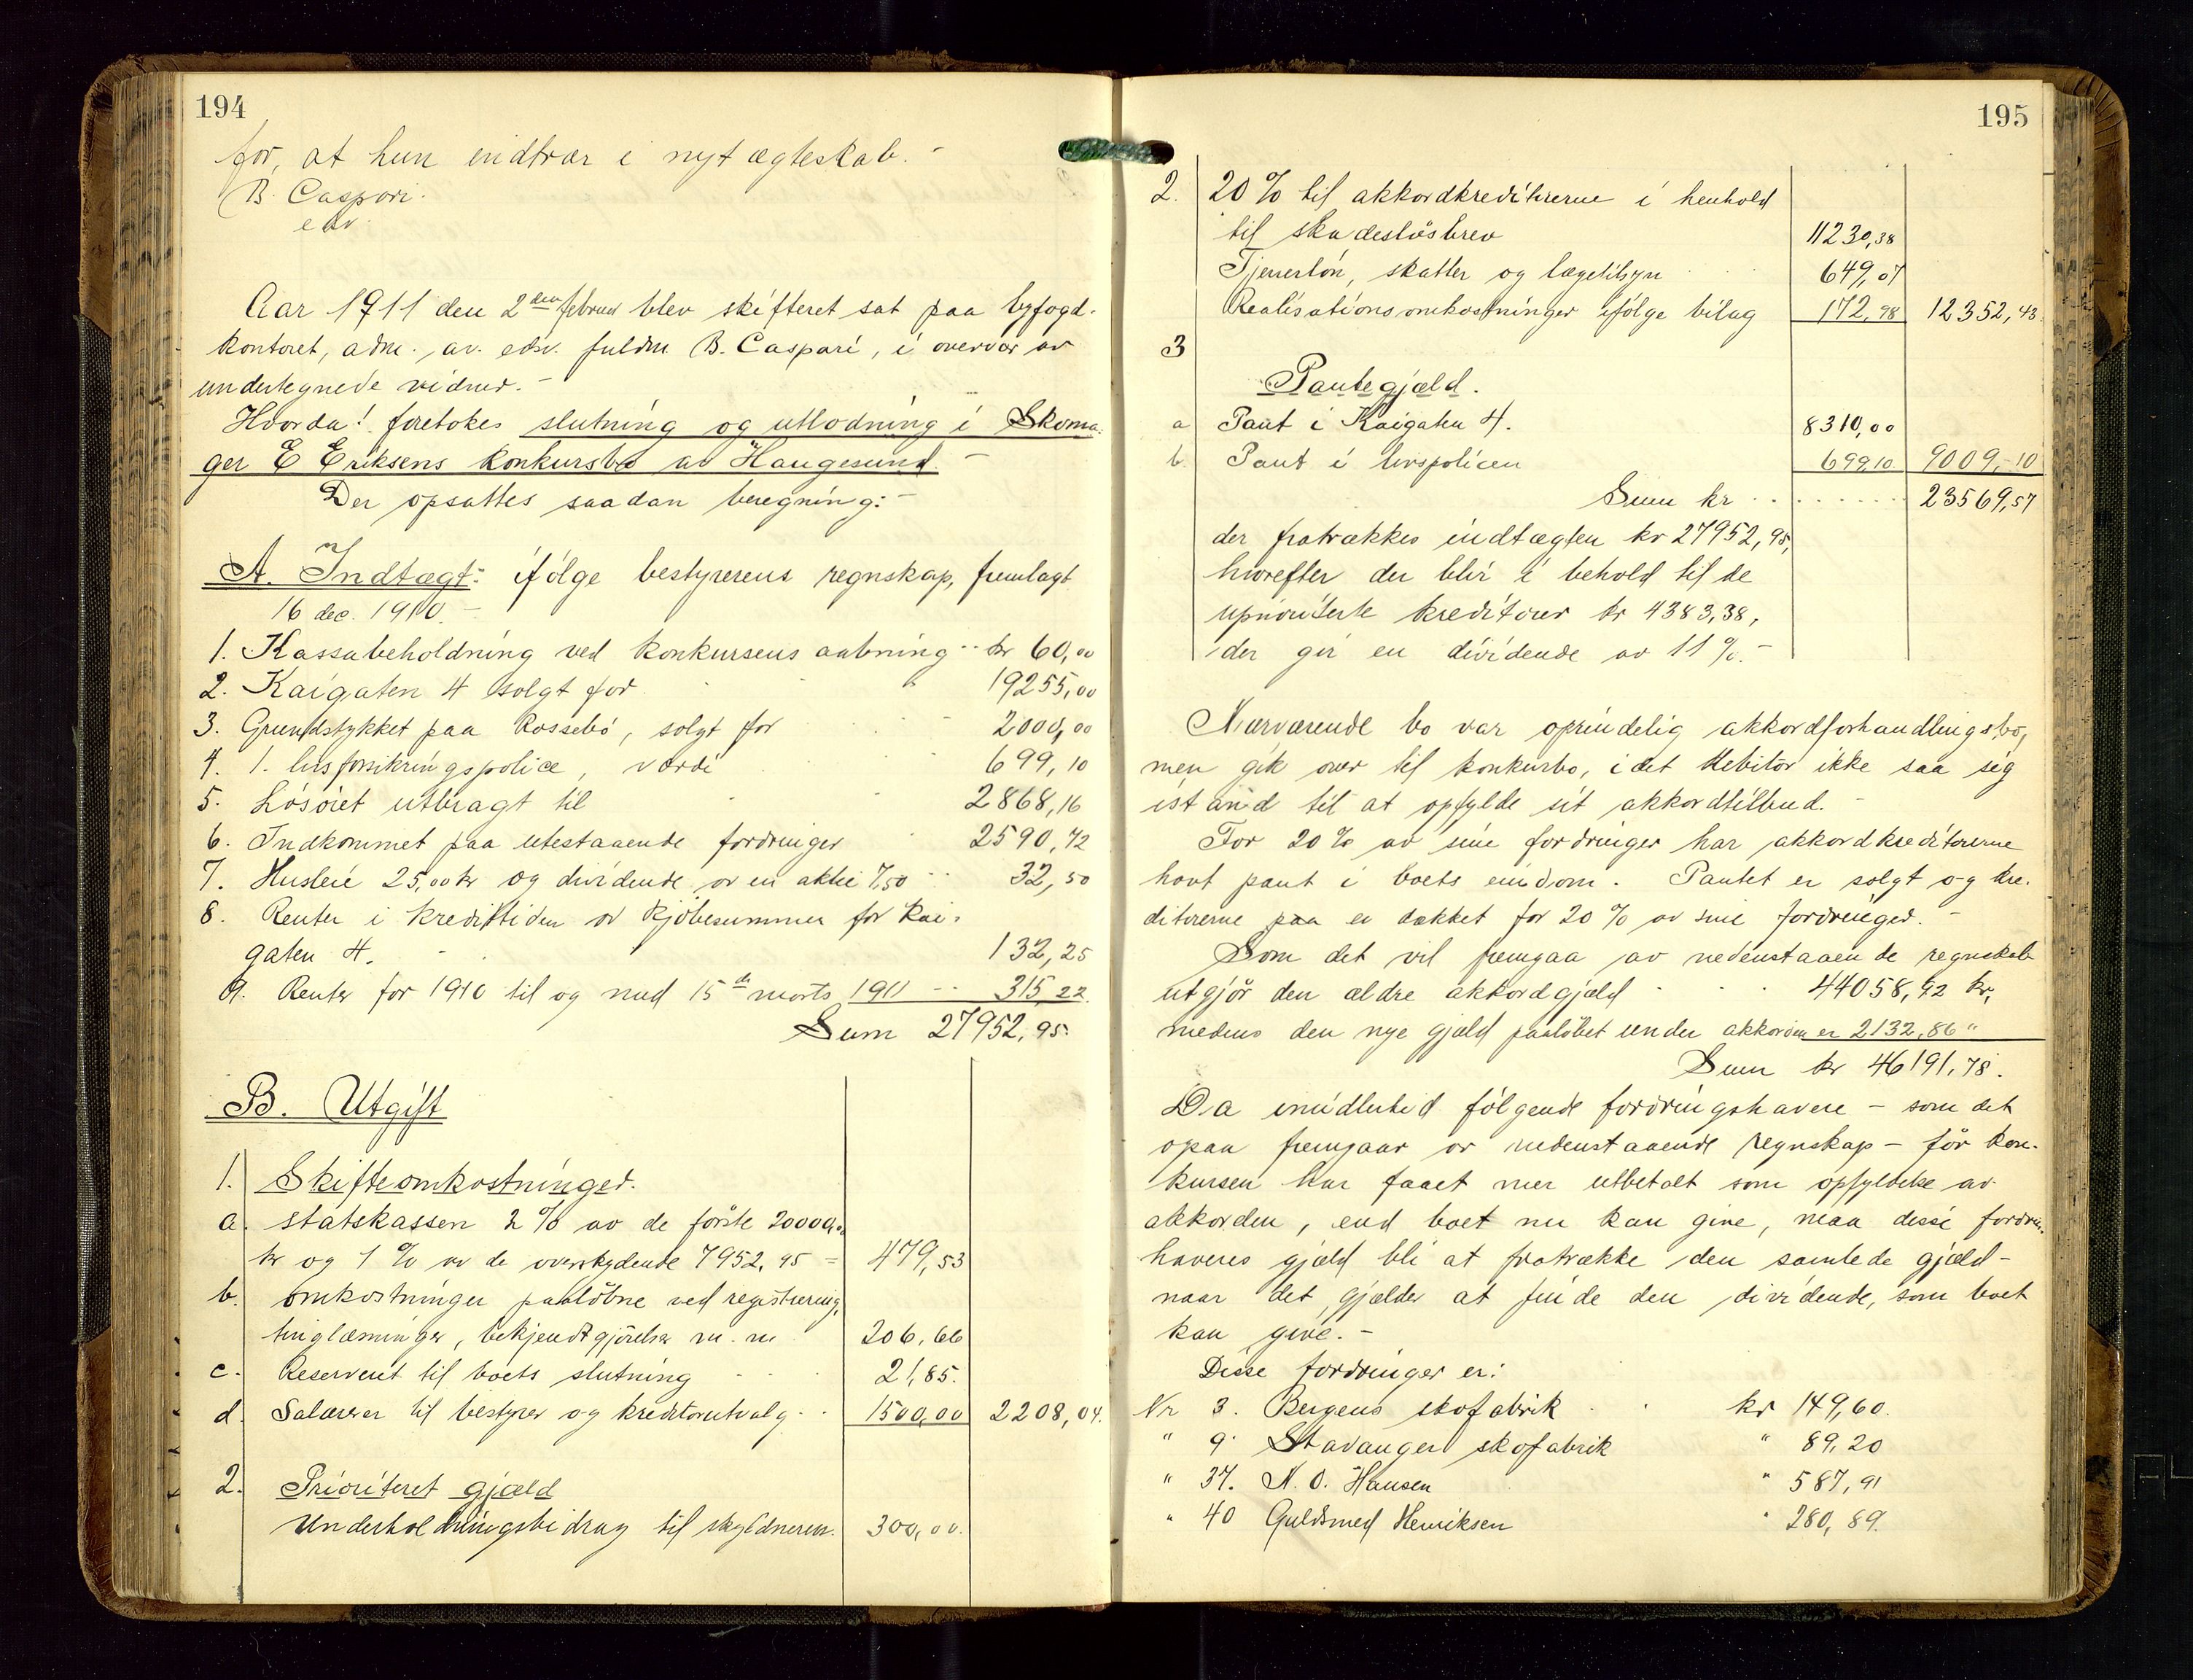 194
for, at hun indtrær i nyt ægteskab. -
B. Caspari.
edv
Aar 1911 den 2den februar blev skifteret sat paa byfogd-
kontoret, adm. av. edsv. fuldm B. Caspari, i overvær av
undertegnede vidner. -
Hvorda! foretokes slutning og utlodning i Skoma-
ger E Eriksens konkursbo av Haugesund. -
Der opsattes saadan beregning: -
A. Indtægt: ifölge bestyrerens regnskap, fremlagt
16 dec. 1910. -
1. Kassabeholdning ved konkursens aabning - kr 60,00
2. Kaigaten 4 solgt for 19255,00
3. Grundstykket paa Rossebö, solgt for 2000,00
4. 1. livsforsikringspolice, værdi 699,10
5. Lösöret utbragt til 2868,16
6. Indkommet paa utestaaende fordringer 2590,72
7. Husleie 25,00 kr og dividende av en aktie 7,50 32,50
8. Renter i kredittiden av kjöbesummen for Kai-
gaten 4. 132,25
9. Renter for 1910 til og med 15de marts 1911 - 315,22
Sum 27952,95.
B. Utgift
1. Skifteomkostninger.
a. statskassen 2 % av de förste 20000,00
kr og 1 % av de overskydende 7952,95 = 479,53
b. omkostninger paalöbne ved registrering,
tinglæsninger, bekjendtgjörelser m. m 206,66
c. Reservert til boets slutning 21,85.
d. Salærer til bestyrer og kreditorutvalg 1500,00 2208,04.
2. Prioriteret gjæld
Underholdningsbidrag til skyldneren. 300,00.
195
2. 20 % til akkordkreditorerne i henhold
til skadeslösbrev 11230,38
Tjenerlön, skatter og lægetilsyn 649,07
Realisationsomkostninger ifölge bilag 172,98 12352,43
3
Pantegjæld.
a Pant i Kaigaten 4. 8310,00
b. Pant i livspolicen 699,10 9009,10
Sum kr 23569,57
der fratrækkes indtægten kr 27952,95,
hvorefter der blir i behold til de
uprioriterte kreditorer kr 4383,38,
der gir en dividende av 11 %. -
Nærværende bo var oprindelig akkordforhandlingsbo,
men gik over til konkursbo, idet debitor ikke saa sig
istand til at opfylde sit akkordtilbud. -
For 20 % av sine fordringer har akkordkreditorerne
havt pant i boets eiendom. Pantet er solgt og kre-
ditorerne paa er dækket for 20 % av sine fordringer. -
Som det vil fremgaa av nedenstaaende regnskab
utgjör den ældre akkordgjæld 44058,92 kr,
medens den nye gjæld paalöbet under akkorden er 2132,86 "
Sum kr 46191,78.
Da imidlertid fölgende fordringshavere - som det
ogsaa fremgaar av nedenstaaende regnskap - för kon-
kursen har faaet mer utbetalt som opfyldelse av
akkorden, end boet nu kan give, maa disse fordrin-
haveres gjæld bli at fratrække den samlede gjæld -
naar det gjælder at finde den dividende, som boet
kan give. -
Disse fordringer er:
Nr 3. Bergens skofabrik kr 149,60.
" 9. Stavanger skofabrik " 89,20
" 37. N. O. Hansen " 587,91
" 40 Guldsmed Henriksen " 280,89.